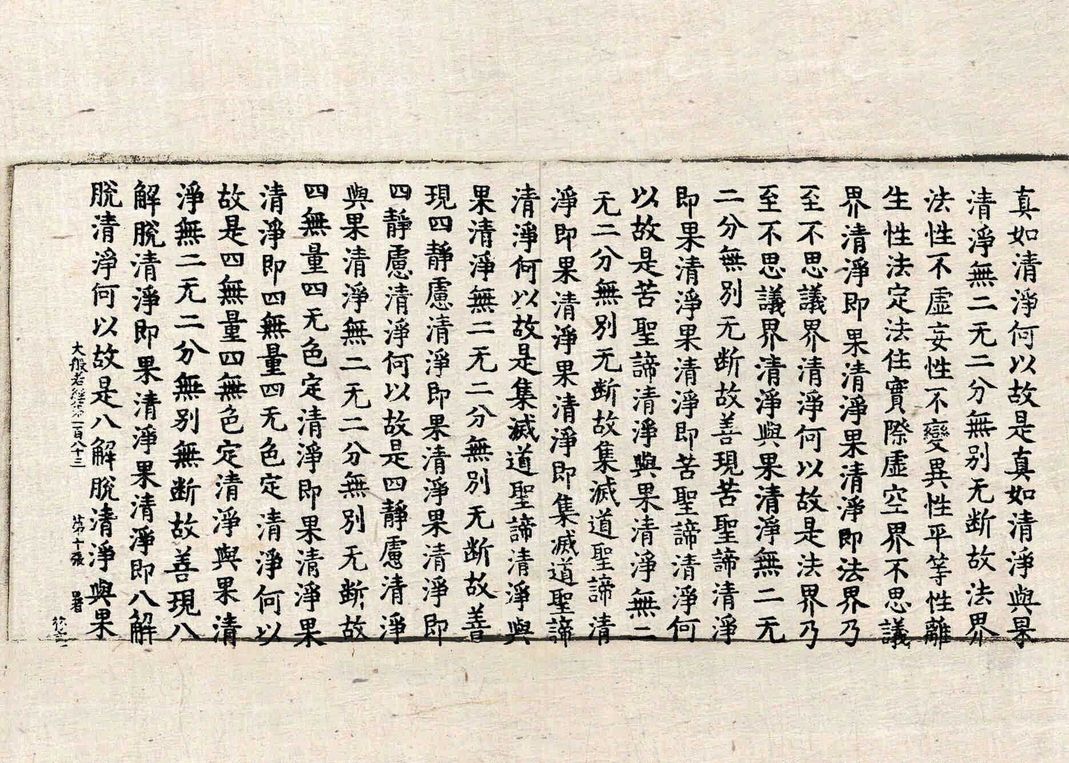 真如清淨何以故是真如清淨與果
清淨無二无二分無別无断故法界
法性不虛妄性不變異性平等性離
生性法定法住實際虛空界不思議
界清淨即果清淨果清淨即法界乃
至不思議界清淨何以故是法界乃
至不思議界清淨與果清淨無二无
二分無別无断故善現苦聖諦清淨
即果清淨果清淨即苦聖諦清淨何
以故是苦聖諦清淨與果清淨無二
无二分無別无断故集滅道聖諦清
淨即果清淨果清淨即集滅道聖諦
清淨何以故是集滅道聖諦清淨與
果清淨無二无二分無別无断故善
現四靜慮清淨即果清淨果清淨即
四靜慮清淨何以故是四靜慮清淨
與果清淨無二无二分無別无断故
四無量四无色定清淨即果清淨果
清淨即四無量四无色定清淨何以
故是四無量四無色定清淨與果清
淨無二无二分無別無断故善現八
解脫清淨即果清淨果清淨即八解
大般若經第一百八十三 第十張 署
脫清淨何以故是八解脫清淨與果